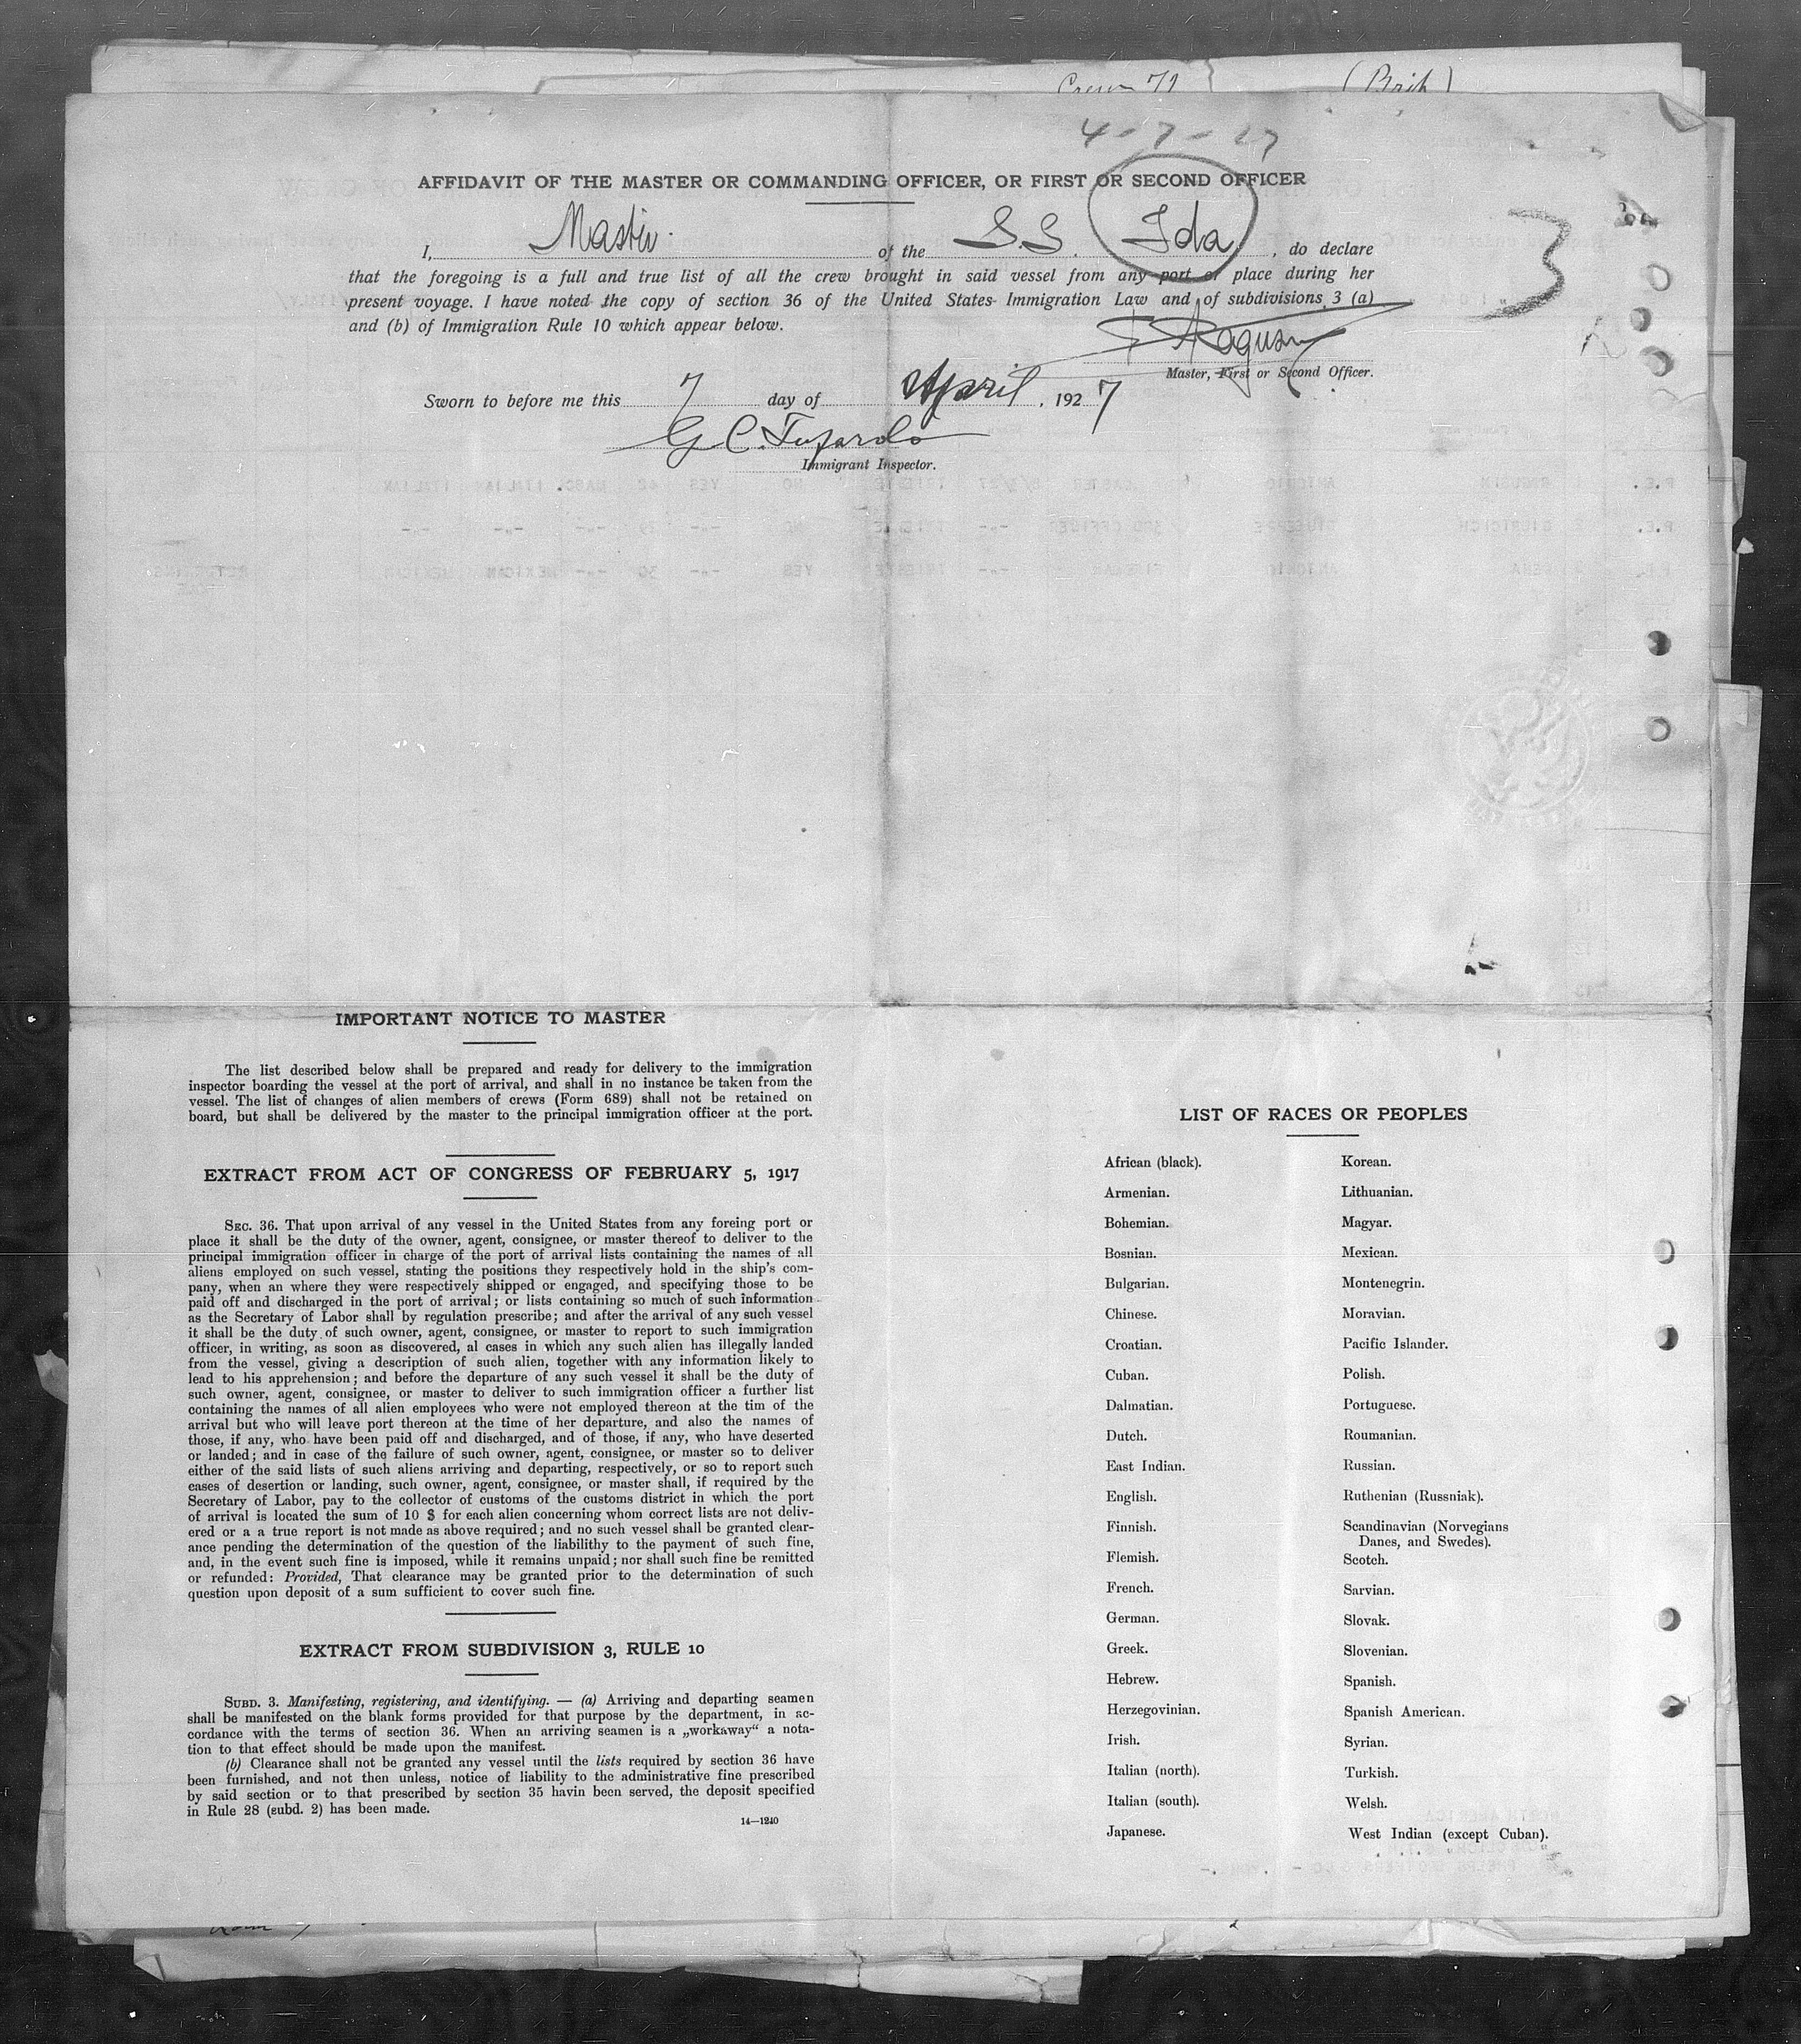 Crew 71 (Brit)
4-7-27
AFFIDAVIT OF THE MASTER OR COMMANDING OFFICER, OR FIRST OR SECOND OFFICER
I, Master of the S.S. Ida, do declare
that the foregoing is a full and true list of all the crew brought in said vessel from any port or place during her
present voyage. I have noted the copy of section 36 of the United States Immigration Law and of subdivisions 3 (a)
and (b) of Immigration Rule 10 which appear below.
3
Master, First or Second Officer.
Sworn to before me this 7 day of April, 1927
G C.
Immigrant Inspector.
IMPORTANT NOTICE TO MASTER
The list described below shall be prepared and ready for delivery to the immigration
inspector boarding the vessel at the port of arrival, and shall in no instance be taken from the
vessel. The list of changes of alien members of crews (Form 689) shall not be retained on
board, but shall be delivered by the master to the principal immigration officer at the port.
EXTRACT FROM ACT OF CONGRESS OF FEBRUARY 5, 1917
SEC. 36. That upon arrival of any vessel in the United States from any foreing port or
place it shall be the duty of the owner, agent, consignee, or master thereof to deliver to the
principal immigration officer in charge of the port of arrival lists containing the names of all
aliens employed on such vessel, stating the positions they respectively hold in the ship's com-
pany, when an where they were respectively shipped or engaged, and specifying those to be
paid off and discharged in the port of arrival; or lists containing so much of such information
as the Secretary of Labor shall by regulation prescribe; and after the arrival of any such vessel
it shall be the duty of such owner, agent, consignee, or master to report to such immigration
officer, in writing, as soon as discovered, al cases in which any such alien has illegally landed
from the vessel, giving a description of such alien, together with any information likely to
lead to his apprehension; and before the departure of any such vessel it shall be the duty of
such owner, agent, consignee, or master to deliver to such immigration officer a further list
containing the names of all alien employees who were not employed thereon at the tim of the
arrival but who will leave port thereon at the time of her departure, and also the names of
those, if any, who have been paid off and discharged, and of those, if any, who have deserted
or landed; and in case of the failure of such owner, agent, consignee, or master so to deliver
either of the said lists of such aliens arriving and departing, respectively, or so to report such
cases of desertion or landing, such owner, agent, consignee, or master shall, if required by the
Secretary of Labor, pay to the collector of customs of the customs district in which the port
of arrival is located the sum of 10 $ for each alien concerning whom correct lists are not deliv-
ered or a a true report is not made as above required; and no such vessel shall be granted clear-
ance pending the determination of the question of the liabilithy to the payment of such fine,
and, in the event such fine is imposed, while it remains unpaid; nor shall such fine be remitted
or refunded: Provided, That clearance may be granted prior to the determination of such
question upon deposit of a sum sufficient to cover such fine.
EXTRACT FROM SUBDIVISION 3, RULE 10
SUBD. 3. Manifesting, registering, and identifying. — (a) Arriving and departing seamen
shall be manifested on the blank forms provided for that purpose by the department, in ac-
cordance with the terms of section 36. When an arriving seamen is a „workaway“ a nota-
tion to that effect should be made upon the manifest.
(b) Clearance shall not be granted any vessel until the lists required by section 36 have
been furnished, and not then unless, notice of liability to the administrative fine prescribed
by said section or to that prescribed by section 35 havin been served, the deposit specified
in Rule 28 (subd. 2) has been made.
14—1240
LIST OF RACES OR PEOPLES
African (black).
Armenian.
Bohemian.
Bosnian.
Bulgarian.
Chinese.
Croatian.
Cuban.
Dalmatian.
Dutch.
East Indian.
English.
Finnish.
Flemish.
French.
German.
Greek.
Hebrew.
Herzegovinian.
Irish.
Italian (north).
Italian (south).
Japanese.
Korean.
Lithuanian.
Magyar.
Mexican.
Montenegrin.
Moravian.
Pacific Islander.
Polish.
Portuguese.
Roumanian.
Russian.
Ruthenian (Russniak).
Scandinavian (Norvegians
Danes, and Swedes).
Scotch.
Sarvian.
Slovak.
Slovenian.
Spanish.
Spanish American.
Syrian.
Turkish.
Welsh.
West Indian (except Cuban).